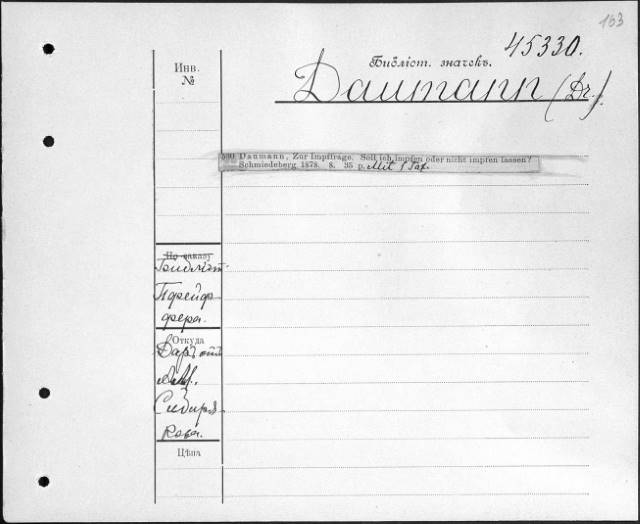 163
45330.
Инв.
№
Библіот. значекъ.
Daumann (Dr.).
590 Daumann, Zur Impffrage. Soll ich impfen oder nicht impfen lassen?
Schmiedeberg 1878. 8. 35 p. Mit 1 Taf.
По заказу
Библіот.
Пфейф-
фера.
Откуда
Даръ отъ
Сибиря-
кова.
Цѣна